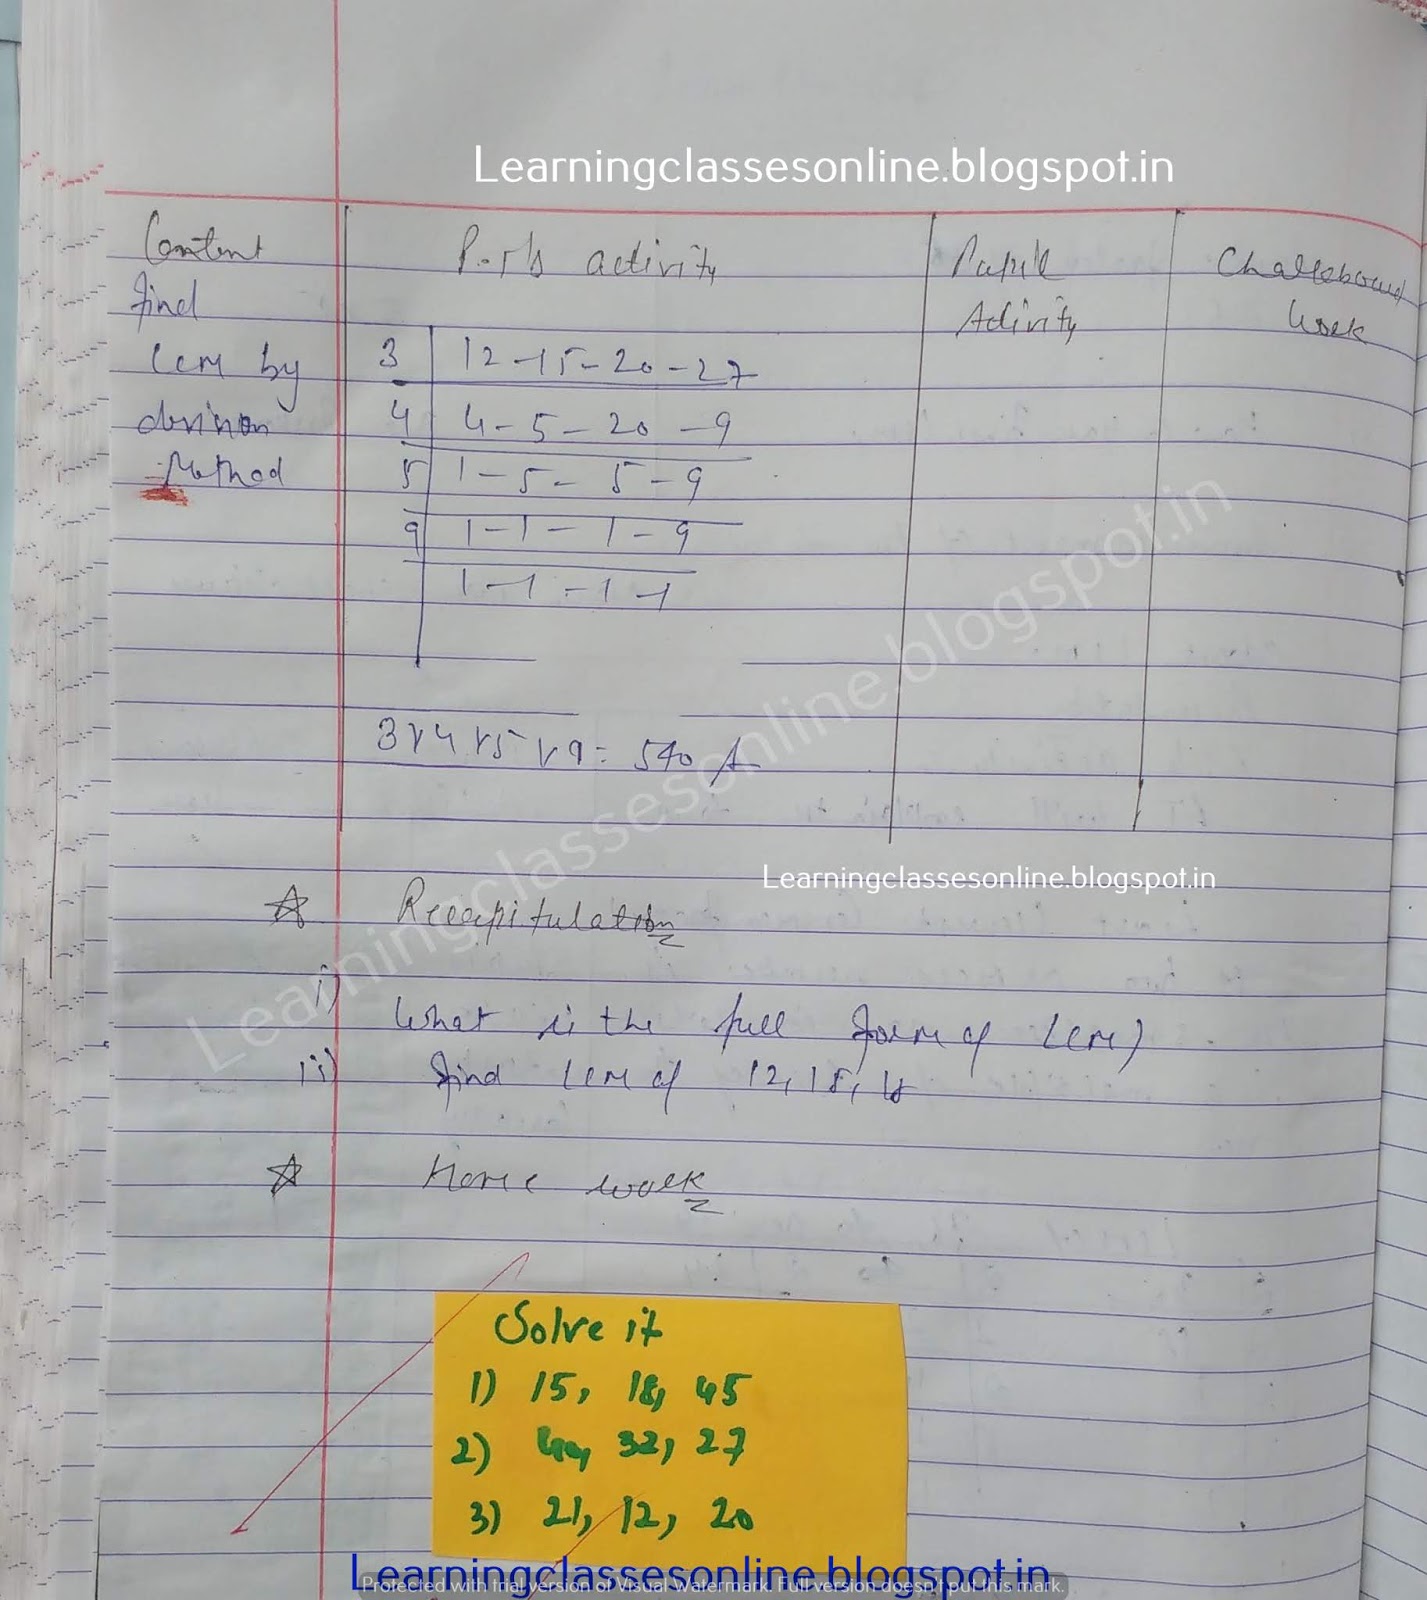 Learningclassesonline.blogspot.in
Content P.T's activity Pupil Challkboard
find Activity Work
LCM by 3 12 - 15 - 20 - 27
division 4 4 - 5 - 20 - 9
Method 5 1 - 5 - 5 - 9
9 1 - 1 - 1 - 9
1 - 1 - 1 - 1
3 x 4 x 5 x 9 = 540 A
Learningclassesonline.blogspot.in
Learningclassesonline.blogspot.in
☆ Recapitulation
i) What is the full form of LCM)
ii) find LCM of 12, 15,
☆ Home work
Solve it
1) 15, 18, 45
2) 40, 32, 27
3) 21, 12, 20
Learningclassesonline.blogspot.in
Protected with trial version of Visual Watermark. Full version doesn't put this mark.